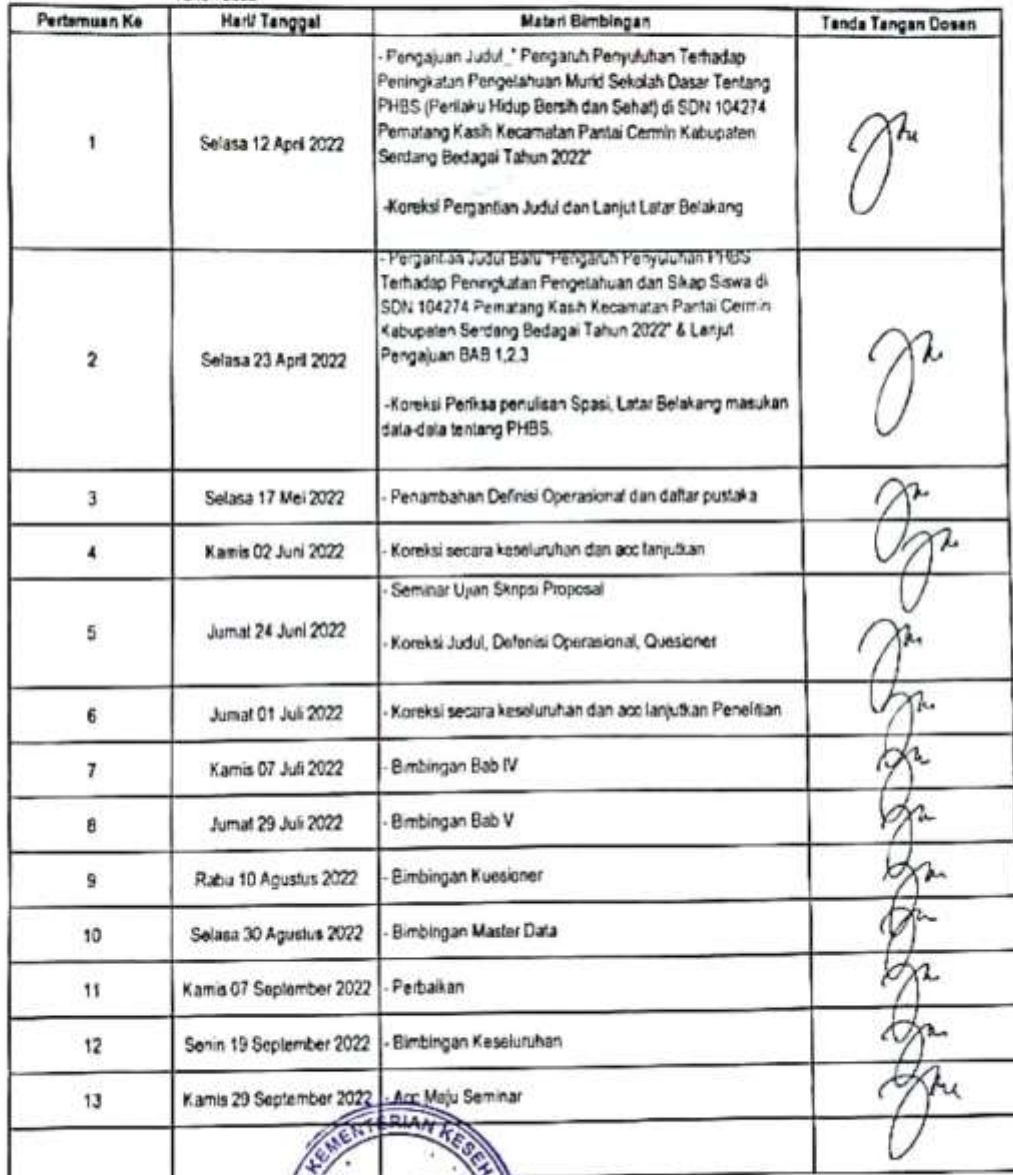 Pertemuan Ke Hari/ Tanggal Materi Bimbingan Tanda Tangan Dosen
1 Selasa 12 April 2022
- Pengajuan Judul " Pengaruh Penyuluhan Terhadap
Peningkatan Pengetahuan Murid Sekolah Dasar Tentang
PHBS (Perilaku Hidup Bersih dan Sehat) di SDN 104274
Pematang Kasih Kecamatan Pantai Cermin Kabupaten
Serdang Bedagai Tahun 2022"
-Koreksi Pergantian Judul dan Lanjut Latar Belakang
2 Selasa 23 April 2022
- Pergantian Judul Baru "Pengaruh Penyuluhan PHBS
Terhadap Peningkatan Pengetahuan dan Sikap Siswa di
SDN 104274 Pematang Kasih Kecamatan Pantai Cermin
Kabupaten Serdang Bedagai Tahun 2022" & Lanjut
Pengajuan BAB 1,2,3
-Koreksi Periksa penulisan Spasi, Latar Belakang masukan
data-data tentang PHBS.
3 Selasa 17 Mei 2022 - Penambahan Definisi Operasional dan daftar pustaka
4 Kamis 02 Juni 2022 - Koreksi secara keseluruhan dan acc lanjutkan
5 Jumat 24 Juni 2022
- Seminar Ujian Skripsi Proposal
- Koreksi Judul, Defenisi Operasional, Quesioner
6 Jumat 01 Juli 2022 - Koreksi secara keseluruhan dan acc lanjutkan Penelitian
7 Kamis 07 Juli 2022 - Bimbingan Bab IV
8 Jumat 29 Juli 2022 - Bimbingan Bab V
9 Rabu 10 Agustus 2022 - Bimbingan Kuesioner
10 Selasa 30 Agustus 2022 - Bimbingan Master Data
11 Kamis 07 September 2022 - Perbaikan
12 Senin 19 September 2022 - Bimbingan Keseluruhan
13 Kamis 29 September 2022 - Acc Maju Seminar
KEMENTERIAN